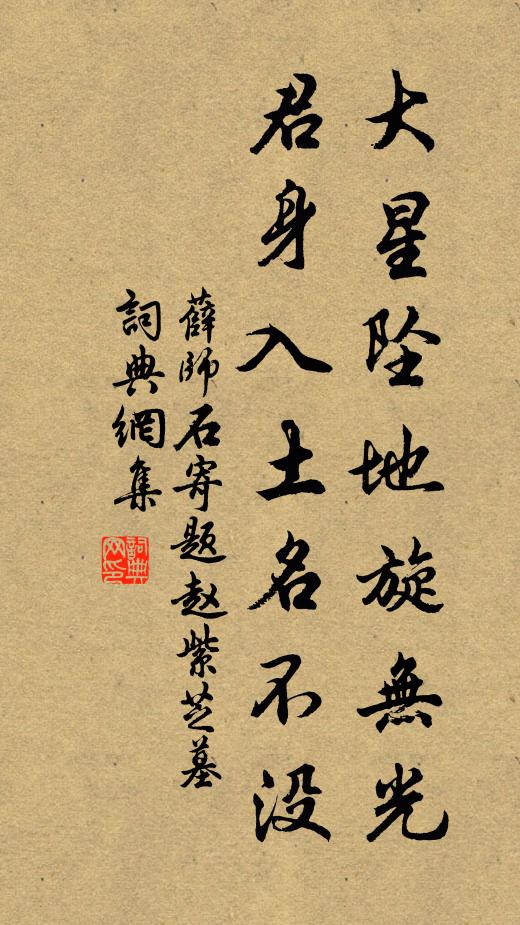 大星坠地旋無光
君身入土名不没
薛師石寄題赵紫芝墓
詞典網集
詞典网印